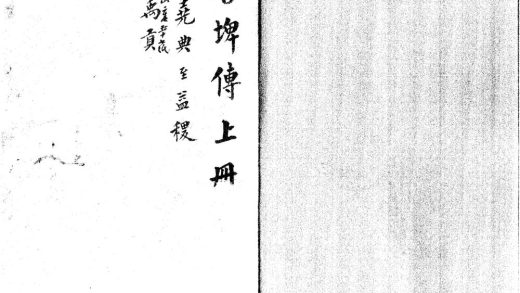 埤傳上冊
堯典至益稷
禹貢